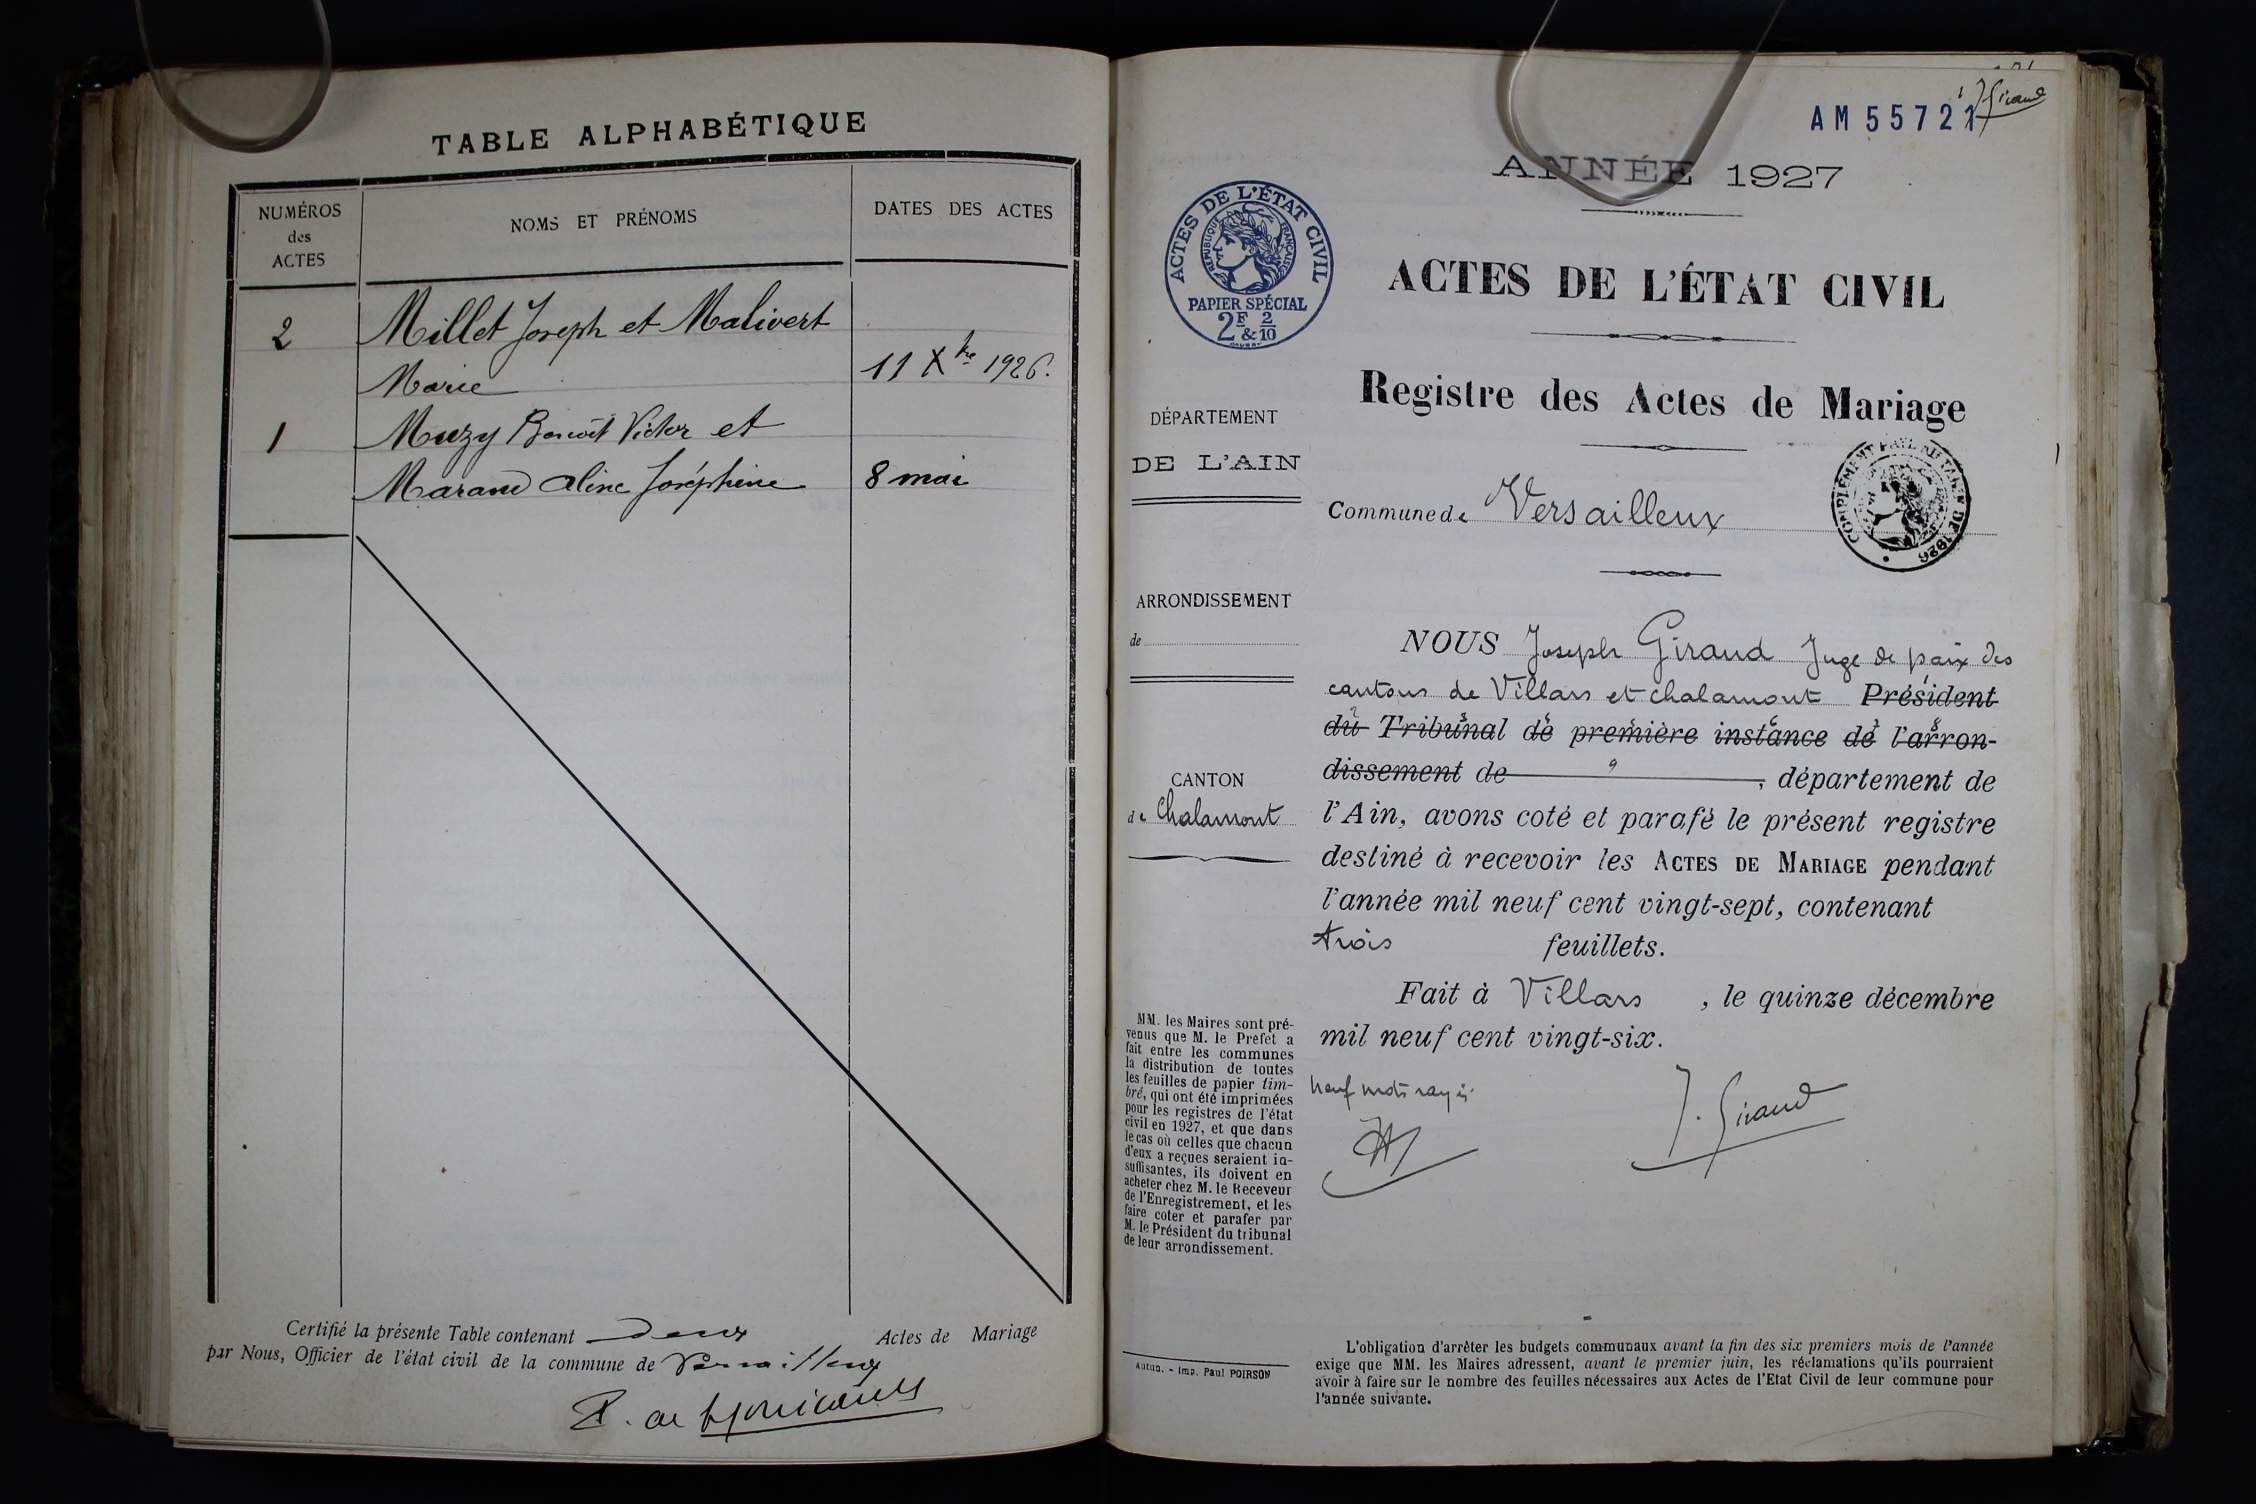 TABLE ALPHABÉTIQUE
NUMÉROS
des
ACTES
NOMS ET PRÉNOMS
DATES DES ACTES
2
Millet Joseph et Malivert
Marie
11 Xbre 1926.
1
Muzy Benoît Victor et
Marand Aline Joséphine
8 mai
Certifié la présente Table contenant deux Actes de Mariage
par Nous, Officier de l'état civil de la commune de Versailleux
AM 55721
1 J. Giraud
ANNÉE 1927
ACTES DE L'ÉTAT CIVIL
RÉPUBLIQUE FRANÇAISE
PAPIER SPÉCIAL
2F & 2/10
ACTES DE L'ÉTAT CIVIL
Registre des Actes de Mariage
DÉPARTEMENT
DE L'AIN
Commune de Versailleux
ARRONDISSEMENT
de
CANTON
de Chalamont
NOUS Joseph Giraud Juge de paix des
cantons de Villars et Chalamont Président
du Tribunal de première instance de l'arron-
dissement de , département de
l'Ain, avons coté et parafé le présent registre
destiné à recevoir les ACTES DE MARIAGE pendant
l'année mil neuf cent vingt-sept, contenant
trois feuillets.
Fait à Villars , le quinze décembre
mil neuf cent vingt-six.
neuf mots rayés
J. Giraud
MM. les Maires sont pré-
venus que M. le Préfet a
fait entre les communes
la distribution de toutes
les feuilles de papier tim-
bré, qui ont été imprimées
pour les registres de l'état
civil en 1927, et que dans
le cas où celles que chacun
d'eux a reçues seraient in-
suffisantes, ils doivent en
acheter chez M. le Receveur
de l'Enregistrement, et les
faire coter et parafer par
M. le Président du tribunal
de leur arrondissement.
Autun. - Imp. Paul POIRSON
L'obligation d'arrêter les budgets communaux avant la fin des six premiers mois de l'année
exige que MM. les Maires adressent, avant le premier juin, les réclamations qu'ils pourraient
avoir à faire sur le nombre des feuilles nécessaires aux Actes de l'Etat Civil de leur commune pour
l'année suivante.